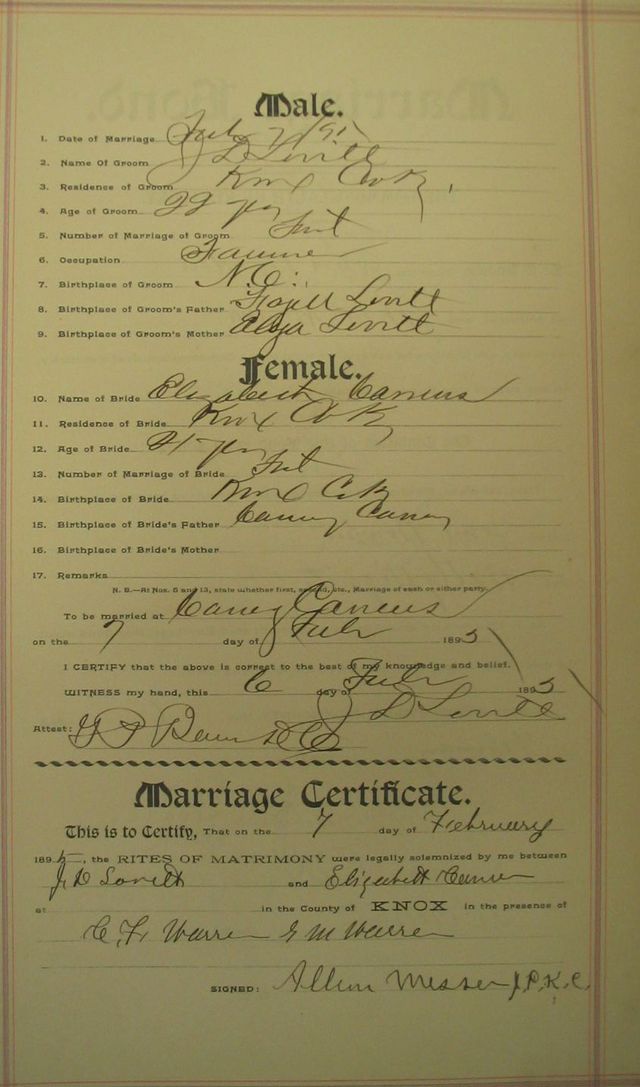 Male.
1. Date of Marriage Feb 7/95
2. Name Of Groom J D Lovitt
3. Residence of Groom Knox Co Ky,
4. Age of Groom 22 yrs
5. Number of Marriage of Groom First
6. Occupation Farmer
7. Birthplace of Groom N.C.
8. Birthplace of Groom's Father Lovitt
9. Birthplace of Groom's Mother Lovitt
Female.
10. Name of Bride Elizabeth
11. Residence of Bride Knox Co Ky
12. Age of Bride 21 yrs
13. Number of Marriage of Bride First
14. Birthplace of Bride Knox Co Ky
15. Birthplace of Bride's Father
16. Birthplace of Bride's Mother
17. Remarks
N. B.—At Nos. 5 and 13, state whether first, second, etc., Marriage of each or either party.
To be married at
on the 7 day of Feb 1895
I CERTIFY that the above is correct to the best of my knowledge and belief.
WITNESS my hand, this 6 day of Feb 1895
J D Lovitt
Attest: D C
Marriage Certificate.
This is to Certify, That on the 7 day of February
1895, the RITES OF MATRIMONY were legally solemnized by me between
J D Lovitt and Elizabeth
at in the County of KNOX in the presence of
C. F. Warren G M Warren
SIGNED: Allen Messer J.P.K.C.